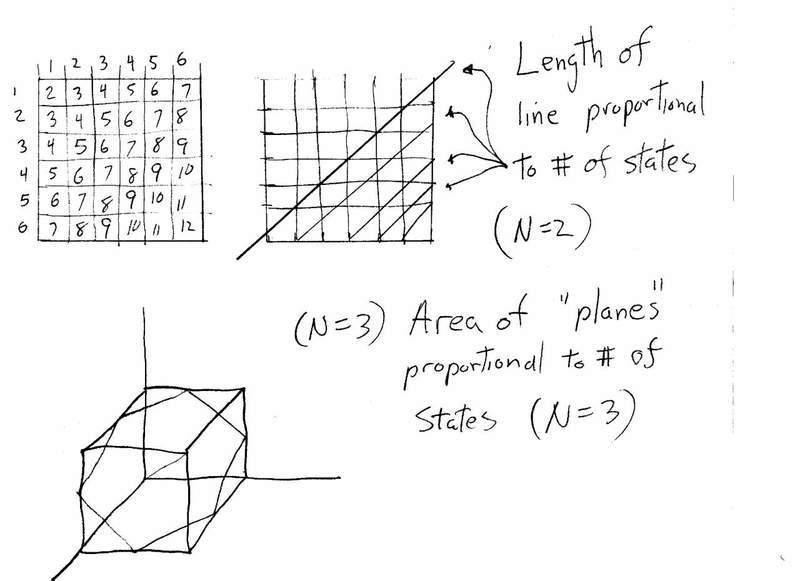 1 2 3 4 5 6
1 2 3 4 5 6 7
2 3 4 5 6 7 8
3 4 5 6 7 8 9
4 5 6 7 8 9 10
5 6 7 8 9 10 11
6 7 8 9 10 11 12
Length of
line proportional
to # of states
(N=2)
(N=3) Area of "planes"
proportional to # of
states (N=3)